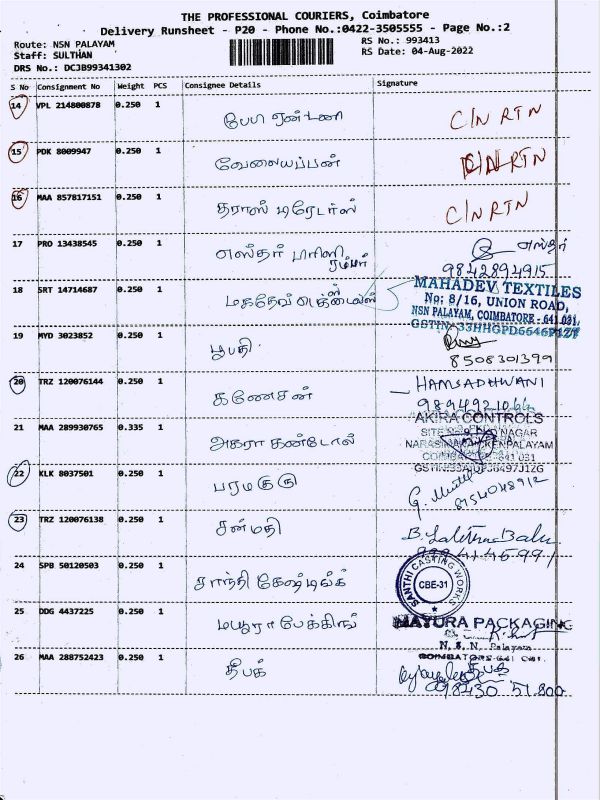 THE PROFESSIONAL COURIERS, Coimbatore
Delivery Runsheet - P20 - Phone No.:0422-3505555 - Page No.:2
Route: NSN PALAYAM
Staff: SULTHAN
DRS No.: DCJB99341302
RS No.: 993413
RS Date: 04-Aug-2022
S No Consignment No Weight PCS Consignee Details Signature
14 VPL 214800878 0.250 1 C/N RTN
15 PDK 8009947 0.250 1 வேலையப்பன் C/N RTN
16 MAA 857817151 0.250 1 தராஸ் டிரேடர்ஸ் C/N RTN
17 PRO 13438545 0.250 1 எஸ்தர் எஸ்தர்
9842894915
18 SRT 14714687 0.250 1 மகாதேவ் MAHADEV TEXTILES
No: 8/16, UNION ROAD,
NSN PALAYAM, COIMBATORE - 641 031.
GSTIN: 33HHGPD6646P1ZT
19 MYD 3023852 0.250 1 பூபதி
8508301399
20 TRZ 120076144 0.250 1 கணேசன் HAMSADHWANI
21 MAA 289930765 0.335 1 அகரா கண்டோல் AKIRA CONTROLS
22 KLK 8037501 0.250 1 பரமகுரு
23 TRZ 120076138 0.250 1 சன்மதி
24 SPB 50120503 0.250 1 சாந்தி கேஷ்டிங்க் SANTHI CASTING WORKS
CBE-31
25 DDG 4437225 0.250 1 மயூரா பேக்கிங் MAYURA PACKAGING
N. S. N. Palayam
26 MAA 288752423 0.250 1 தீபக் தீபக்
98430 51800